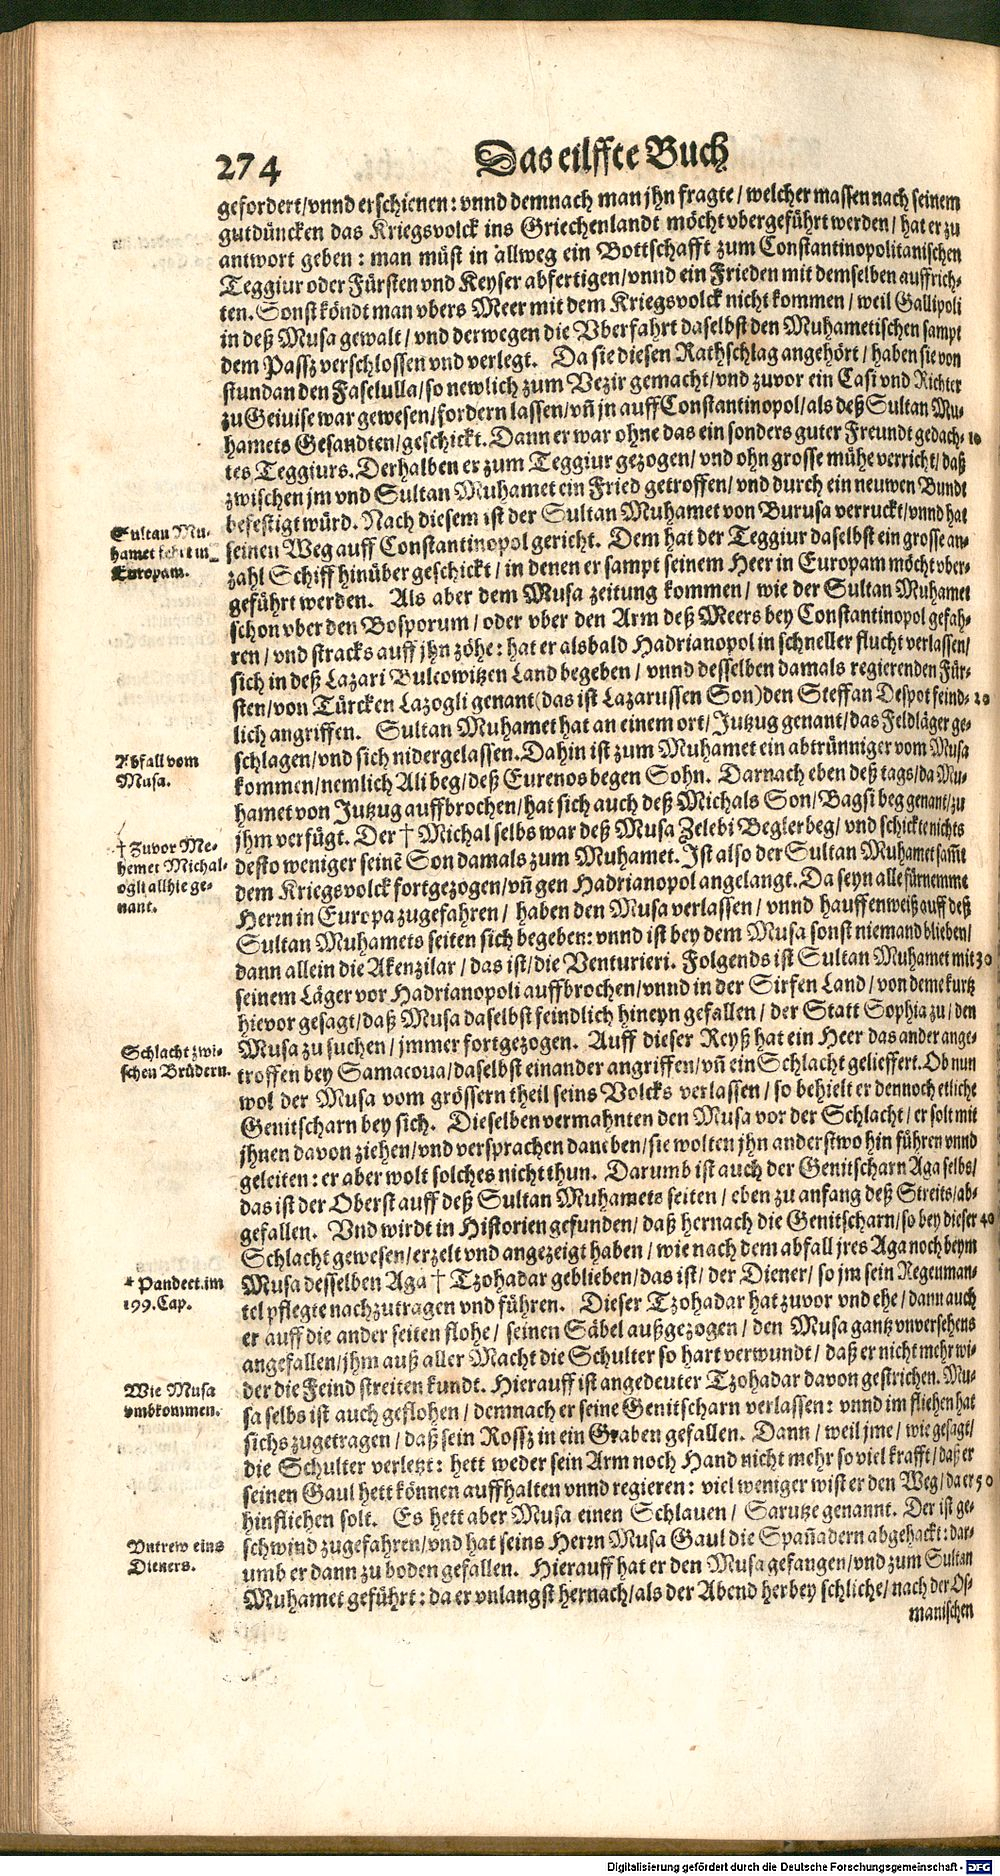 274
Das eilffte Buch
gefordert/vnnd erschienen: vnnd demnach man jhn fragte/ welcher massen nach seinem
gutdüncken das Kriegsvolck ins Griechenlandt möcht vbergeführt werden/ hat er zu
antwort geben: man müst in allweg ein Bottschafft zum Constantinopolitanischen
Teggiur oder Fürsten vnd Keyser abfertigen/ vnnd ein Frieden mit demselben auffrich-
ten. Sonst köndt man vbers Meer mit dem Kriegsvolck nicht kommen/ weil Gallipoli
in deß Musa gewalt/ vnd derwegen die Vberfahrt daselbst den Muhametischen sampt
dem Passz verschlossen vnd verlegt. Da sie diesen Rathschlag angehört/ haben sie von
stundan den Faselulla/ so newlich zum Vezir gemacht/ vnd zuvor ein Casi vnd Richter
zu Geiuise war gewesen/ fordern lassen/ vñ jn auff Constantinopol/ als deß Sultan Mu-
hamets Gesandten/ geschickt. Dann er war ohne das ein sonders guter Freundt gedach- 10
tes Teggiurs. Derhalben er zum Teggiur gezogen/ vnd ohn grosse mühe verricht/ daß
zwischen jm vnd Sultan Muhamet ein Fried getroffen/ vnd durch ein neuwen Bundt
befestigt würd. Nach diesem ist der Sultan Muhamet von Burusa verruckt/ vnnd hat
Sultan Mu-
hamet kehrt in
Europam.
seinen Weg auff Constantinopol gericht. Dem hat der Teggiur daselbst ein grosse an-
zahl Schiff hinüber geschickt/ in denen er sampt seinem Heer in Europam möcht vber-
geführt werden. Als aber dem Musa zeitung kommen/ wie der Sultan Muhamet
schon vber den Bosporum/ oder vber den Arm deß Meers bey Constantinopol gefah-
ren/ vnd stracks auff jhn zöhe: hat er alsbald Hadrianopol in schneller flucht verlassen/
sich in deß Lazari Bulcowitzen Land begeben/ vnnd desselben damals regierenden Für-
sten/ von Türcken Lazogli genant (das ist Lazarussen Son) den Steffan Despot feind- 20
lich angriffen. Sultan Muhamet hat an einem ort/ Jutzug genant/ das Feldläger ge-
schlagen/ vnd sich nidergelassen. Dahin ist zum Muhamet ein abtrünniger vom Musa
Abfall vom
Musa.
kommen/ nemlich Ali beg/ deß Eurenos begen Sohn. Darnach eben deß tags/ da Mu-
hamet von Jutzug auffbrochen/ hat sich auch deß Michals Son/ Bagsi beg genant/ zu
jhm verfügt. Der † Michal selbs war deß Musa Zelebi Beglerbeg/ vnd schickte nichts
† Zuvor Me-
hemet Michal-
ogli allhie ge-
nant.
desto weniger seinẽ Son damals zum Muhamet. Ist also der Sultan Muhamet sam̃t
dem Kriegsvolck fortgezogen/ vñ gen Hadrianopol angelangt. Da seyn alle fürnemme
Herrn in Europa zugefahren/ haben den Musa verlassen/ vnnd hauffenweiß auff deß
Sultan Muhamets seiten sich begeben: vnnd ist bey dem Musa sonst niemand blieben/
dann allein die Akenzilar/ das ist/ die Venturieri. Folgends ist Sultan Muhamet mit 30
seinem Läger vor Hadrianopoli auffbrochen/ vnnd in der Sirfen Land/ von deme kurtz
hievor gesagt/ daß Musa daselbst feindlich hineyn gefallen/ der Statt Sophia zu/ den
Musa zu suchen/ jmmer fortgezogen. Auff dieser Reyß hat ein Heer das ander ange-
Schlacht zwi-
schen Brüdern.
troffen bey Samacoua/ daselbst einander angriffen/ vñ ein Schlacht gelieffert. Ob nun
wol der Musa vom grössern theil seins Volcks verlassen/ so behielt er dennoch etliche
Genitscharn bey sich. Dieselben vermahnten den Musa vor der Schlacht/ er solt mit
jhnen davon ziehen/ vnd versprachen daneben/ sie wolten jhn anderstwo hin führen vnnd
geleiten: er aber wolt solches nicht thun. Darumb ist auch der Genitscharn Aga selbs/
das ist der Oberst auff deß Sultan Muhamets seiten/ eben zu anfang deß Streits/ ab-
gefallen. Vnd wirdt in Historien gefunden/ daß hernach die Genitscharn/ so bey dieser 40
Schlacht gewesen/ erzelt vnd angezeigt haben/ wie nach dem abfall jres Aga noch beym
* Pandect. im
199. Cap.
Musa desselben Aga † Tzohadar geblieben/ das ist/ der Diener/ so jm sein Regenman-
tel pflegte nachzutragen vnd führen. Dieser Tzohadar hat zuvor vnd ehe/ dann auch
er auff die ander seiten flohe/ seinen Säbel außgezogen/ den Musa gantz vnversehens
angefallen/ jhm auß aller Macht die Schulter so hart verwundt/ daß er nicht mehr wi-
der die Feind streiten kundt. Hierauff ist angedeuter Tzohadar davon gestrichen. Mu-
Wie Musa
vmbkommen.
sa selbs ist auch geflohen/ demnach er seine Genitscharn verlassen: vnnd im fliehen hat
sichs zugetragen/ daß sein Rossz in ein Graben gefallen. Dann/ weil jme/ wie gesagt/
die Schulter verletzt: hett weder sein Arm noch Hand nicht mehr so viel krafft/ daß er
seinen Gaul hett können auffhalten vnnd regieren: viel weniger wist er den Weg/ da er 50
hinfliehen solt. Es hett aber Musa einen Schlauen/ Sarutze genannt. Der ist ge-
schwind zugefahren/ vnd hat seins Herrn Musa Gaul die Spañadern abgehackt: dar-
Vntrew eins
Dieners.
umb er dann zu boden gefallen. Hierauff hat er den Musa gefangen/ vnd zum Sultan
Muhamet geführt: da er vnlangst hernach/ als der Abend herbey schliche/ nach der Os-
manischen
Digitalisierung gefördert durch die Deutsche Forschungsgemeinschaft - DFG